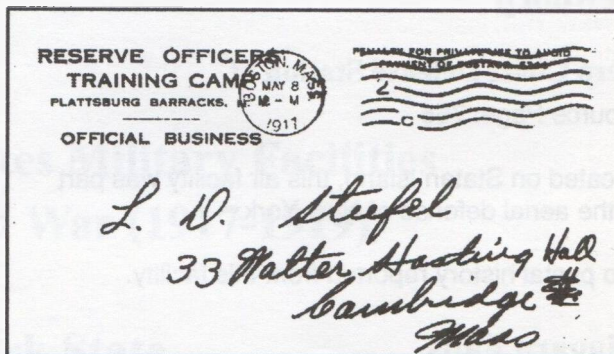 RESERVE OFFICERS
TRAINING CAMP
PLATTSBURG BARRACKS,
OFFICIAL BUSINESS
BOSTON, MASS.
MAY 8
12 - M
1911
PENALTY FOR PRIVATE USE TO AVOID
PAYMENT OF POSTAGE $300
L. D. Steefel
33 Walter Hastings Hall
Cambridge
Mass